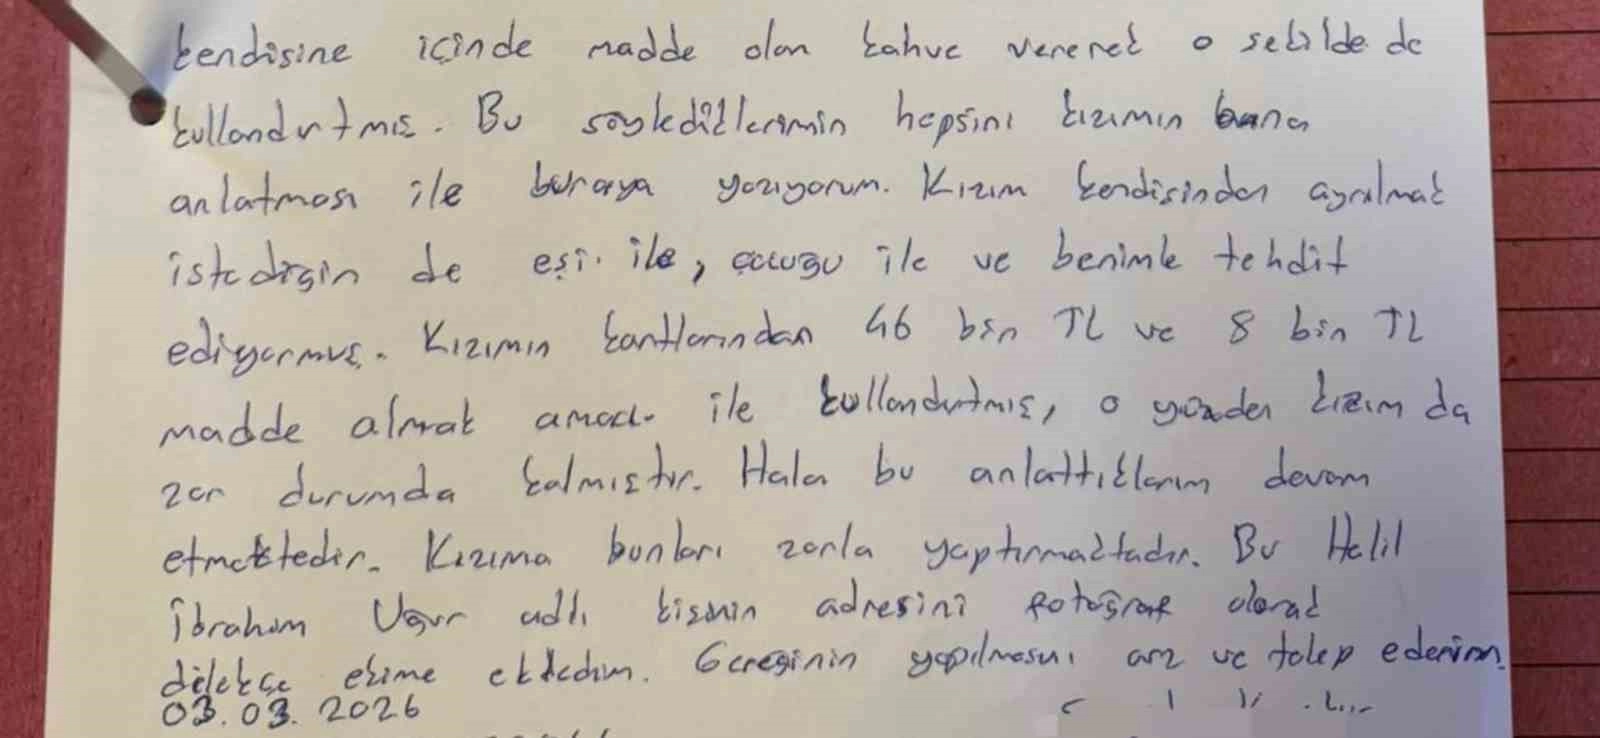 kendisine içinde madde olan kahve vererek o şekilde de
kullandırtmış. Bu söylediklerimin hepsini kızımın bana
anlatması ile buraya yazıyorum. Kızım kendisinden ayrılmak
istediğin de eşi ile, çocuğu ile ve benimle tehdit
ediyormuş. Kızımın kartlarından 46 bin TL ve 8 bin TL
madde almak amacı ile kullandırtmış, o yüzden kızım da
zor durumda kalmıştır. Hala bu anlattıklarım devam
etmektedir. Kızıma bunları zorla yaptırmaktadır. Bu Halil
İbrahim Uğur adlı kişinin adresini fotoğraf olarak
dilekçe ekime ekledim. Gereğinin yapılmasını arz ve talep ederim.
03.03.2026